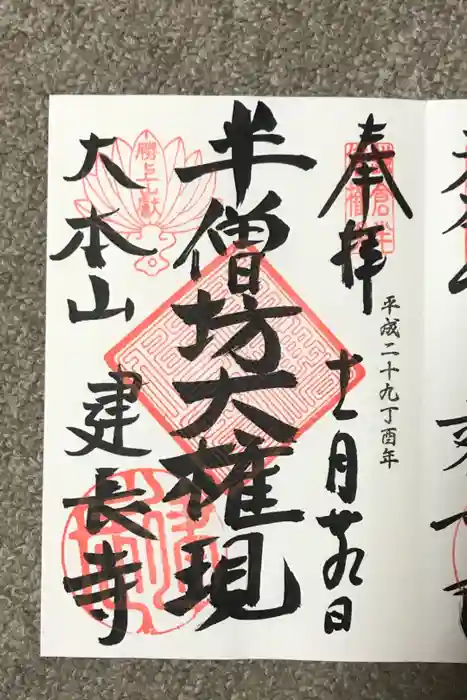 奉拝
平成二十九丁酉年
十一月廿九日
半僧坊大権現
勝上嶽
大本山 建長寺